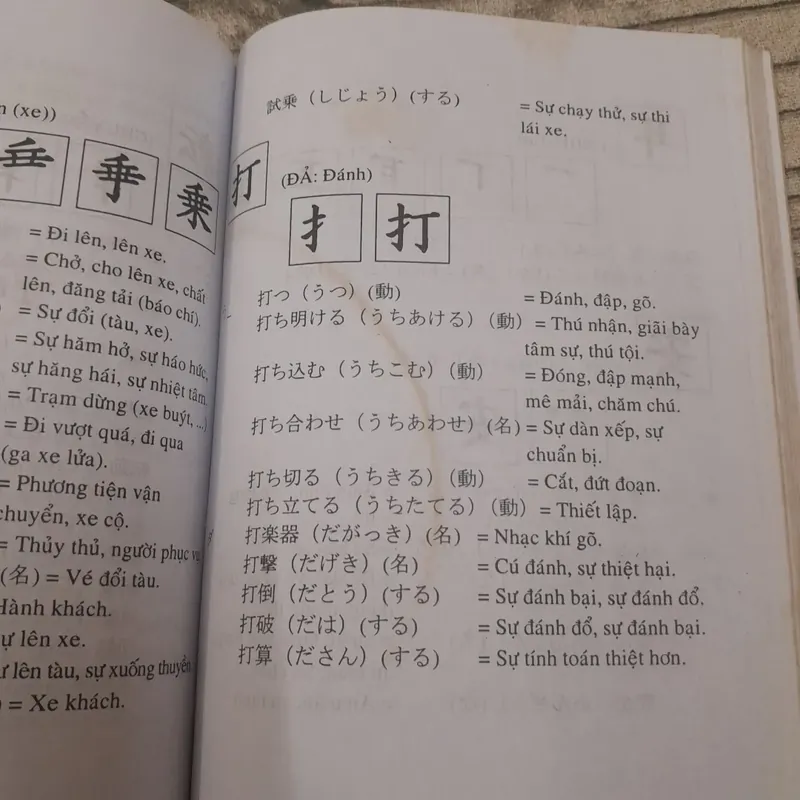 (xe))
乗
= Đi lên, lên xe.
= Chở, cho lên xe, chất
lên, đăng tải (báo chí).
= Sự đổi (tàu, xe).
= Sự hăm hở, sự háo hức,
sự hăng hái, sự nhiệt tâm.
= Trạm dừng (xe buýt, ...)
= Đi vượt quá, đi qua
(ga xe lửa).
= Phương tiện vận
chuyển, xe cộ.
= Thủy thủ, người phục vụ
(名) = Vé đổi tàu.
Hành khách.
lên xe.
lên tàu, sự xuống thuyền
= Xe khách.
試乗（しじょう）(する) = Sự chạy thử, sự thi
lái xe.
打 (ĐẢ: Đánh)
扌 打
打つ（うつ）(動) = Đánh, đập, gõ.
打ち明ける（うちあける）(動) = Thú nhận, giãi bày
tâm sự, thú tội.
打ち込む（うちこむ）(動) = Đóng, đập mạnh,
mê mải, chăm chú.
打ち合わせ（うちあわせ）(名) = Sự dàn xếp, sự
chuẩn bị.
打ち切る（うちきる）(動) = Cắt, đứt đoạn.
打ち立てる（うちたてる）(動) = Thiết lập.
打楽器（だがっき）(名) = Nhạc khí gõ.
打撃（だげき）(名) = Cú đánh, sự thiệt hại.
打倒（だとう）(する) = Sự đánh bại, sự đánh đổ.
打破（だは）(する) = Sự đánh đổ, sự đánh bại.
打算（ださん）(する) = Sự tính toán thiệt hơn.